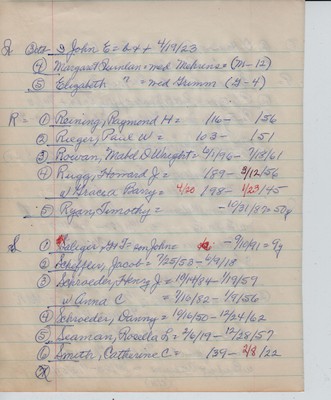 John E = b + + 4/19/23
④ Margaret Quinlan = med Mehrens = (M-12)
⑤ Elizabeth " = med Grimm (G-4)
R = ① Roining, Raymond H = 116 - 156
② Rieger, Paul W = 103 - 151
③ Rowan, Mabel D Waight = 4/1/96 - 7/13/61
④ Rugg, Howard J = 189 - 3/12/56
w/ Gracia Barry = 4/20 198 - 1/23/45
⑤ Ryan, Timothy = - 10/31/87 = 50y
S ① John = - 9/10/91 = 9y
② Scheffler, Jacob = 7/25/53 - 4/9/18
③ Schroeder, Henry J = 10/14/84 - 1/19/59
w/ Anna C = 7/10/82 - 1/9/656
④ Schroeder, Danny = 10/16/50 - 12/24/62
⑤ Seaman, Rosella L = 2/6/19 - 12/28/57
⑥ Smith, Catherine C = 139 - 2/8/22
⑦